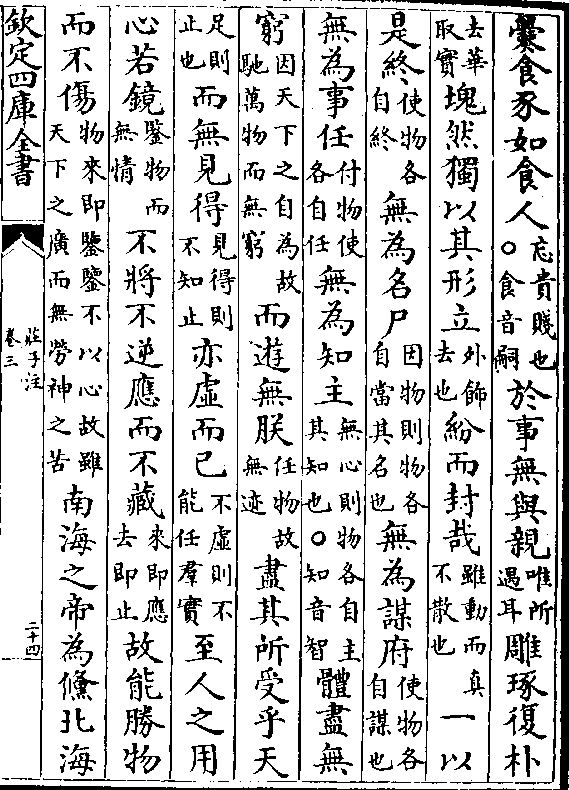 爨食豕如食人忘貴賤也○食音嗣於事無與親唯所遇耳雕琢復朴
去華取實塊然獨以其形立外飾去也紛而封哉雖動而真不散也一以
是終使物各自終無為名尸因物則物各自當其名也無為謀府使物各自謀也
無為事任付物使各自任無為知主無心則物各自主其知也○知音智體盡無
窮因天下之自為故馳萬物而無窮而遊無朕任物故無迹盡其所受乎天
足則止也而無見得見得則不知止亦虛而已不虛則不能任羣實至人之用
心若鏡鑒物而無情不將不逆應而不藏來即應去即止故能勝物
而不傷物來即鑒鑒不以心故雖天下之廣而無勞神之苦南海之帝為儵北海
欽定四庫全書
莊子注
卷三
二十四